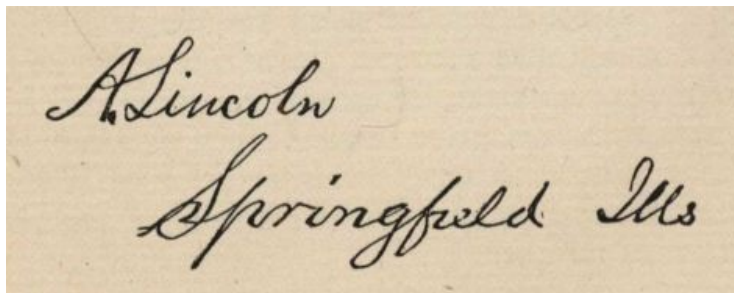 A. Lincoln
Springfield Ills